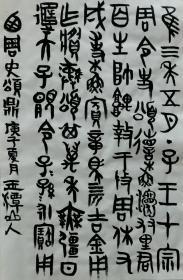 隹三年五月丁子王才宗
周令史頌省蘇友里君
百生帥堣盩于成周休又
成事蘇賓章馬四匹吉金用
乍彝頌其萬年無疆日
天子顯令子孫永寶用
西周史頌鼎 庚子夏月 山人